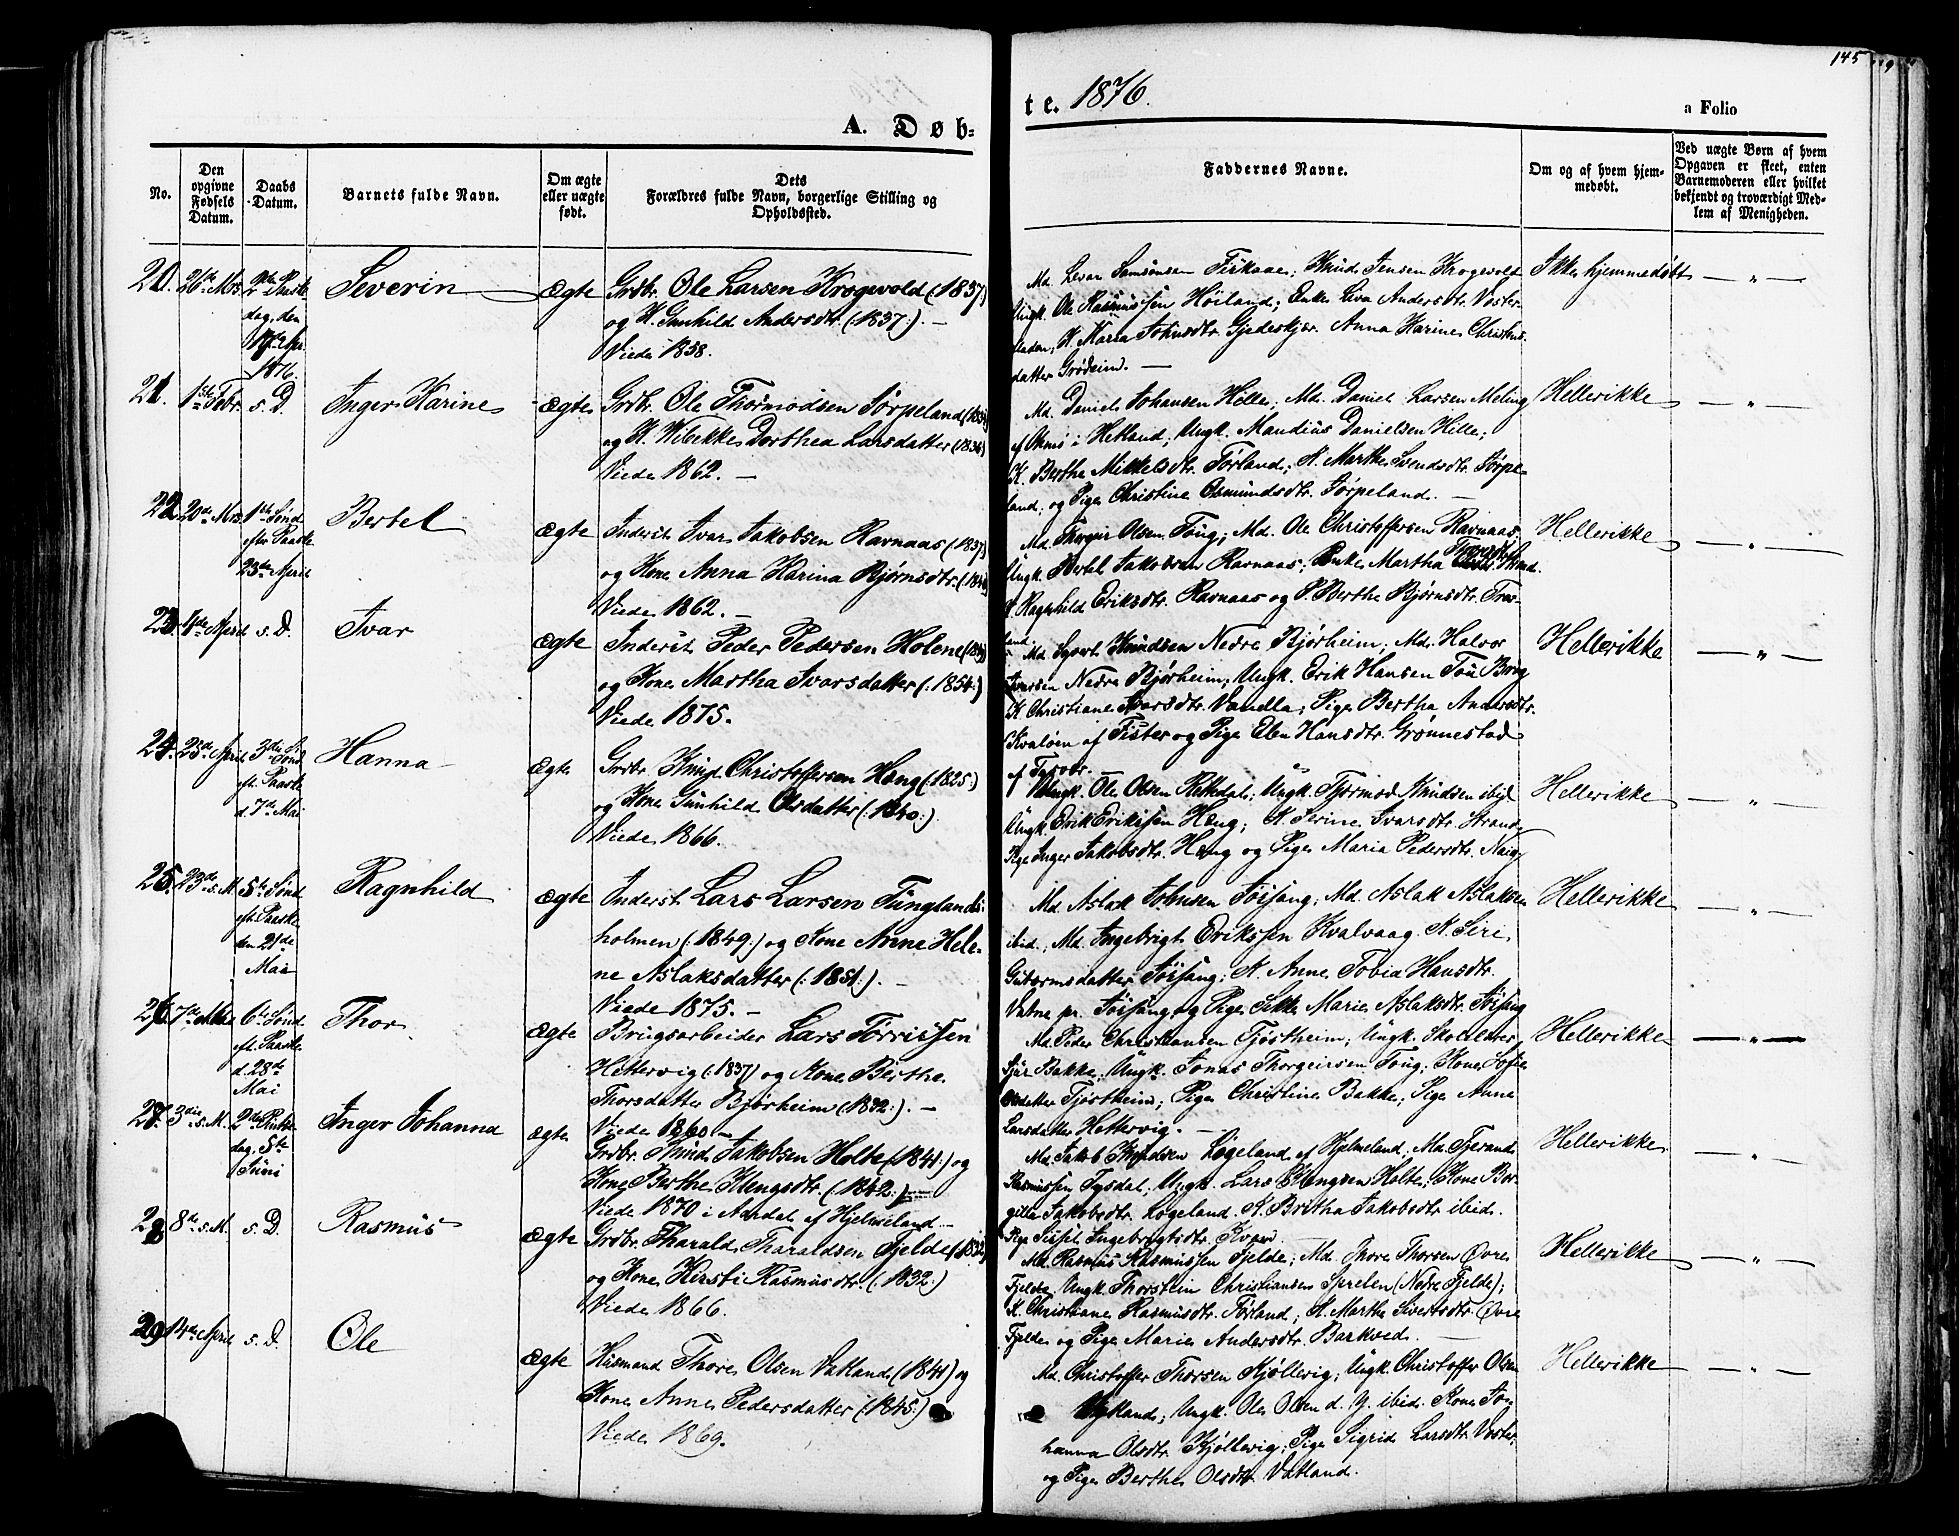 145
A. Døb=
te. 1876.
a Folio
No.
Den opgivne Fødsels Datum.
Daabs Datum.
Barnets fulde Navn.
Om ægte eller uægte født.
Dets
Forældres fulde Navn, borgerlige Stilling og
Opholdssted.
Faddernes Navne.
Om og af hvem hjem-
medøbt.
Ved uægte Børn af hvem
Opgaven er skeet, enten
Barnemoderen eller hvilket
bekjendt og troværdigt Med-
lem af Menigheden.
20. 26de Mrs. 2den Paaske
dag, den
17de Apr.
1876.
Severin
ægte
Grdbr. Ole Larsen Krogevold (:1837)
og K. Gunhild Andersdtr. (:1837:). —
Viede 1858.
Md. Levar Samsonsen Fiskaae; Knud Jensen Krogevold
Ungk. Ole Rasmussen Høiland; Enke Liva Andersdtr. Voster-
K. Maria Johnsdtr. Gjedeskjær. Anna Karine Christens-
datter Grødeim. —
Ikke hjemmedøbt
— „ —
21. 1ste Febr. s. D.
Inger Karine
ægte
Grdbr. Ole Thormodsen Jørpeland
og K. Wibekke Dorthea Larsdatter (1836)
Viede 1862. —
Md. Daniel Johansen Hille; Md. Daniel Larsen Meling
i Hetland; Ungk. Mandius Danielsen Hille;
K. Bertha Mikkelsdtr. Tørland; K. Marthe Svendsdtr. Jørpe-
land; og Pige Christine Osmundsdtr. Jørpeland. —
Hellerikke
— „ —
22. 20de Mrs. 1ste Sønd.
efter Paaske
23de April
Bertel
ægte
Inderst Ivar Jakobsen Ravnaas (1837)
og Kone Anna Karina Bjørnsdtr.
Viede 1862. —
Md. Thorgeir Olsen Toug; Md. Ole Christoffersen Ravnaas
Ungk. Bertel Jakobsen Ravnaas; Enke Martha
K. Ragnhild Eriksdtr. Ravnaas og P. Berthe Bjørnsdtr.
Hellerikke
— „ —
23. 4de April s. D.
Ivar
ægte
Inderst Peder Pedersen Holene
og Kone Martha Ivarsdatter (:1854:)
Viede 1875.
Md. Sjovert Knudsen Nedre Bjørheim; Md. Halvor
Ivarsen Nedre Bjørheim; Ungk. Erik Hansen Tou Brug
K. Christiane Ivarsdtr. Vandla; Pige Bertha Andersdtr.
Kvaløen af Fister og Pige Elen Hansdtr. Grønnestad
Hellerikke
— „ —
24. 25de April 3die
Sønd.
eft. Paaske
d. 7de Mai
Hanna
ægte
Grdbr. Knud Christoffersen Heng (:1825:)
og Kone Gunhild Olsdatter (:1840:)
Viede 1866.
Ungk. Ole Olsen Rettedal; Ungk. Tjærmod Knudsen ibid
Ungk. Erik Eriksen Heng; K. Serine Ivarsdtr. Strand
Pige Inger Jakobsdtr. Heng og Pige Maria Pedersdtr. Naig
Hellerikke
— „ —
25. 23de s. M. 5te Sønd
eft. Paaske
den 21de
Mai
Ragnhild
ægte
Inderst Lars Larsen Tunglands-
holmen (:1849:) og Kone Anne Hele-
ne Aslaksdatter (:1851:). —
Viede 1875. —
Md. Aslak Johnsen Jøssang; Md. Aslak Aslaksen
ibid; Md. Ingebrigt Eriksen Kvalvaag. K. Siri
Gutormsdatter Jøssang; K. Anne Tobia Hansdtr.
Vatne pr. Jøssang og Pige Sikke Marie Aslaksdtr. Jøssang
Hellerikke
— „ —
26. 7de Mai 6te Sønd
eft. Paaske
d. 28de
Mai
Thor
ægte
Brugsarbeider Lars Tørrissen
Hettervig (:1837) og Kone Berthe
Thorsdatter Bjørheim (1832:). —
Viede 1860 —
Md. Peder Christiansen Tjøstheim; Ungk. Skolelærer
Sjur Bakke; Ungk. Jonas Thorgeirsen Toug; Kone Sofie
Tjøstheim; Pige Christine Bakke; Pige Anna
Larsdatter Hettervig. —
Hellerikke
— „ —
27. 3die s. M. 2den Pintse
dag. 5te
Juni
Inger Johanna
ægte
Grdbr. Knud Jakobsen Holte (1841:) og
Kone Berthe Klengsdtr. (:1842:)
Viede 1870 i Aardal af Hjelmeland —
Md. Jakob Knudsen Løgeland af Hjelmeland; Md. Tjerand
Rasmussen Tysdal; Ungk. Lars Klengsen Holte; Kone Bor-
gilla Jakobsdtr. Løgeland. K. Britha Jakobsdtr. ibid.
Pige Sissel Ingebrigtsdtr.
Hellerikke
— „ —
28. 8de s. M. s. D.
Rasmus
ægte
Grdbr. Tharald Tharaldsen Fjelde
og Kone Kirsti Rasmusdtr. (:1832:)
Viede 1866.
Md. Rasmus Rasmussen Fjelde; Md. Thore Thorsen Øvre
Fjelde, Ungk. Thorstein Christiansen (Nedre Fjelde);
K. Christiane Rasmusdtr. Tørland; K. Marthe Sivertsdtr. Øvre
Fjelde og Pige Marie Andersdtr. Barkved. —
Hellerikke
— „ —
29. 14de April s. D.
Ole
ægte
Husmand Thore Olsen Vatland (1841) og
Kone Anne Pedersdatter (:1845:)
Viede 1869.
Md. Christoffer Thorsen Kjølevig; Ungk. Christoffer Olsen
Ungk. Ole Olsen d. y. ibid. Kone Jo-
hanna Olsdtr. Kjøllevig; Pige Sigrid Larsdtr. Voster
og Pige Berthe Olsdtr. Vatland.
Hellerikke
— „ —